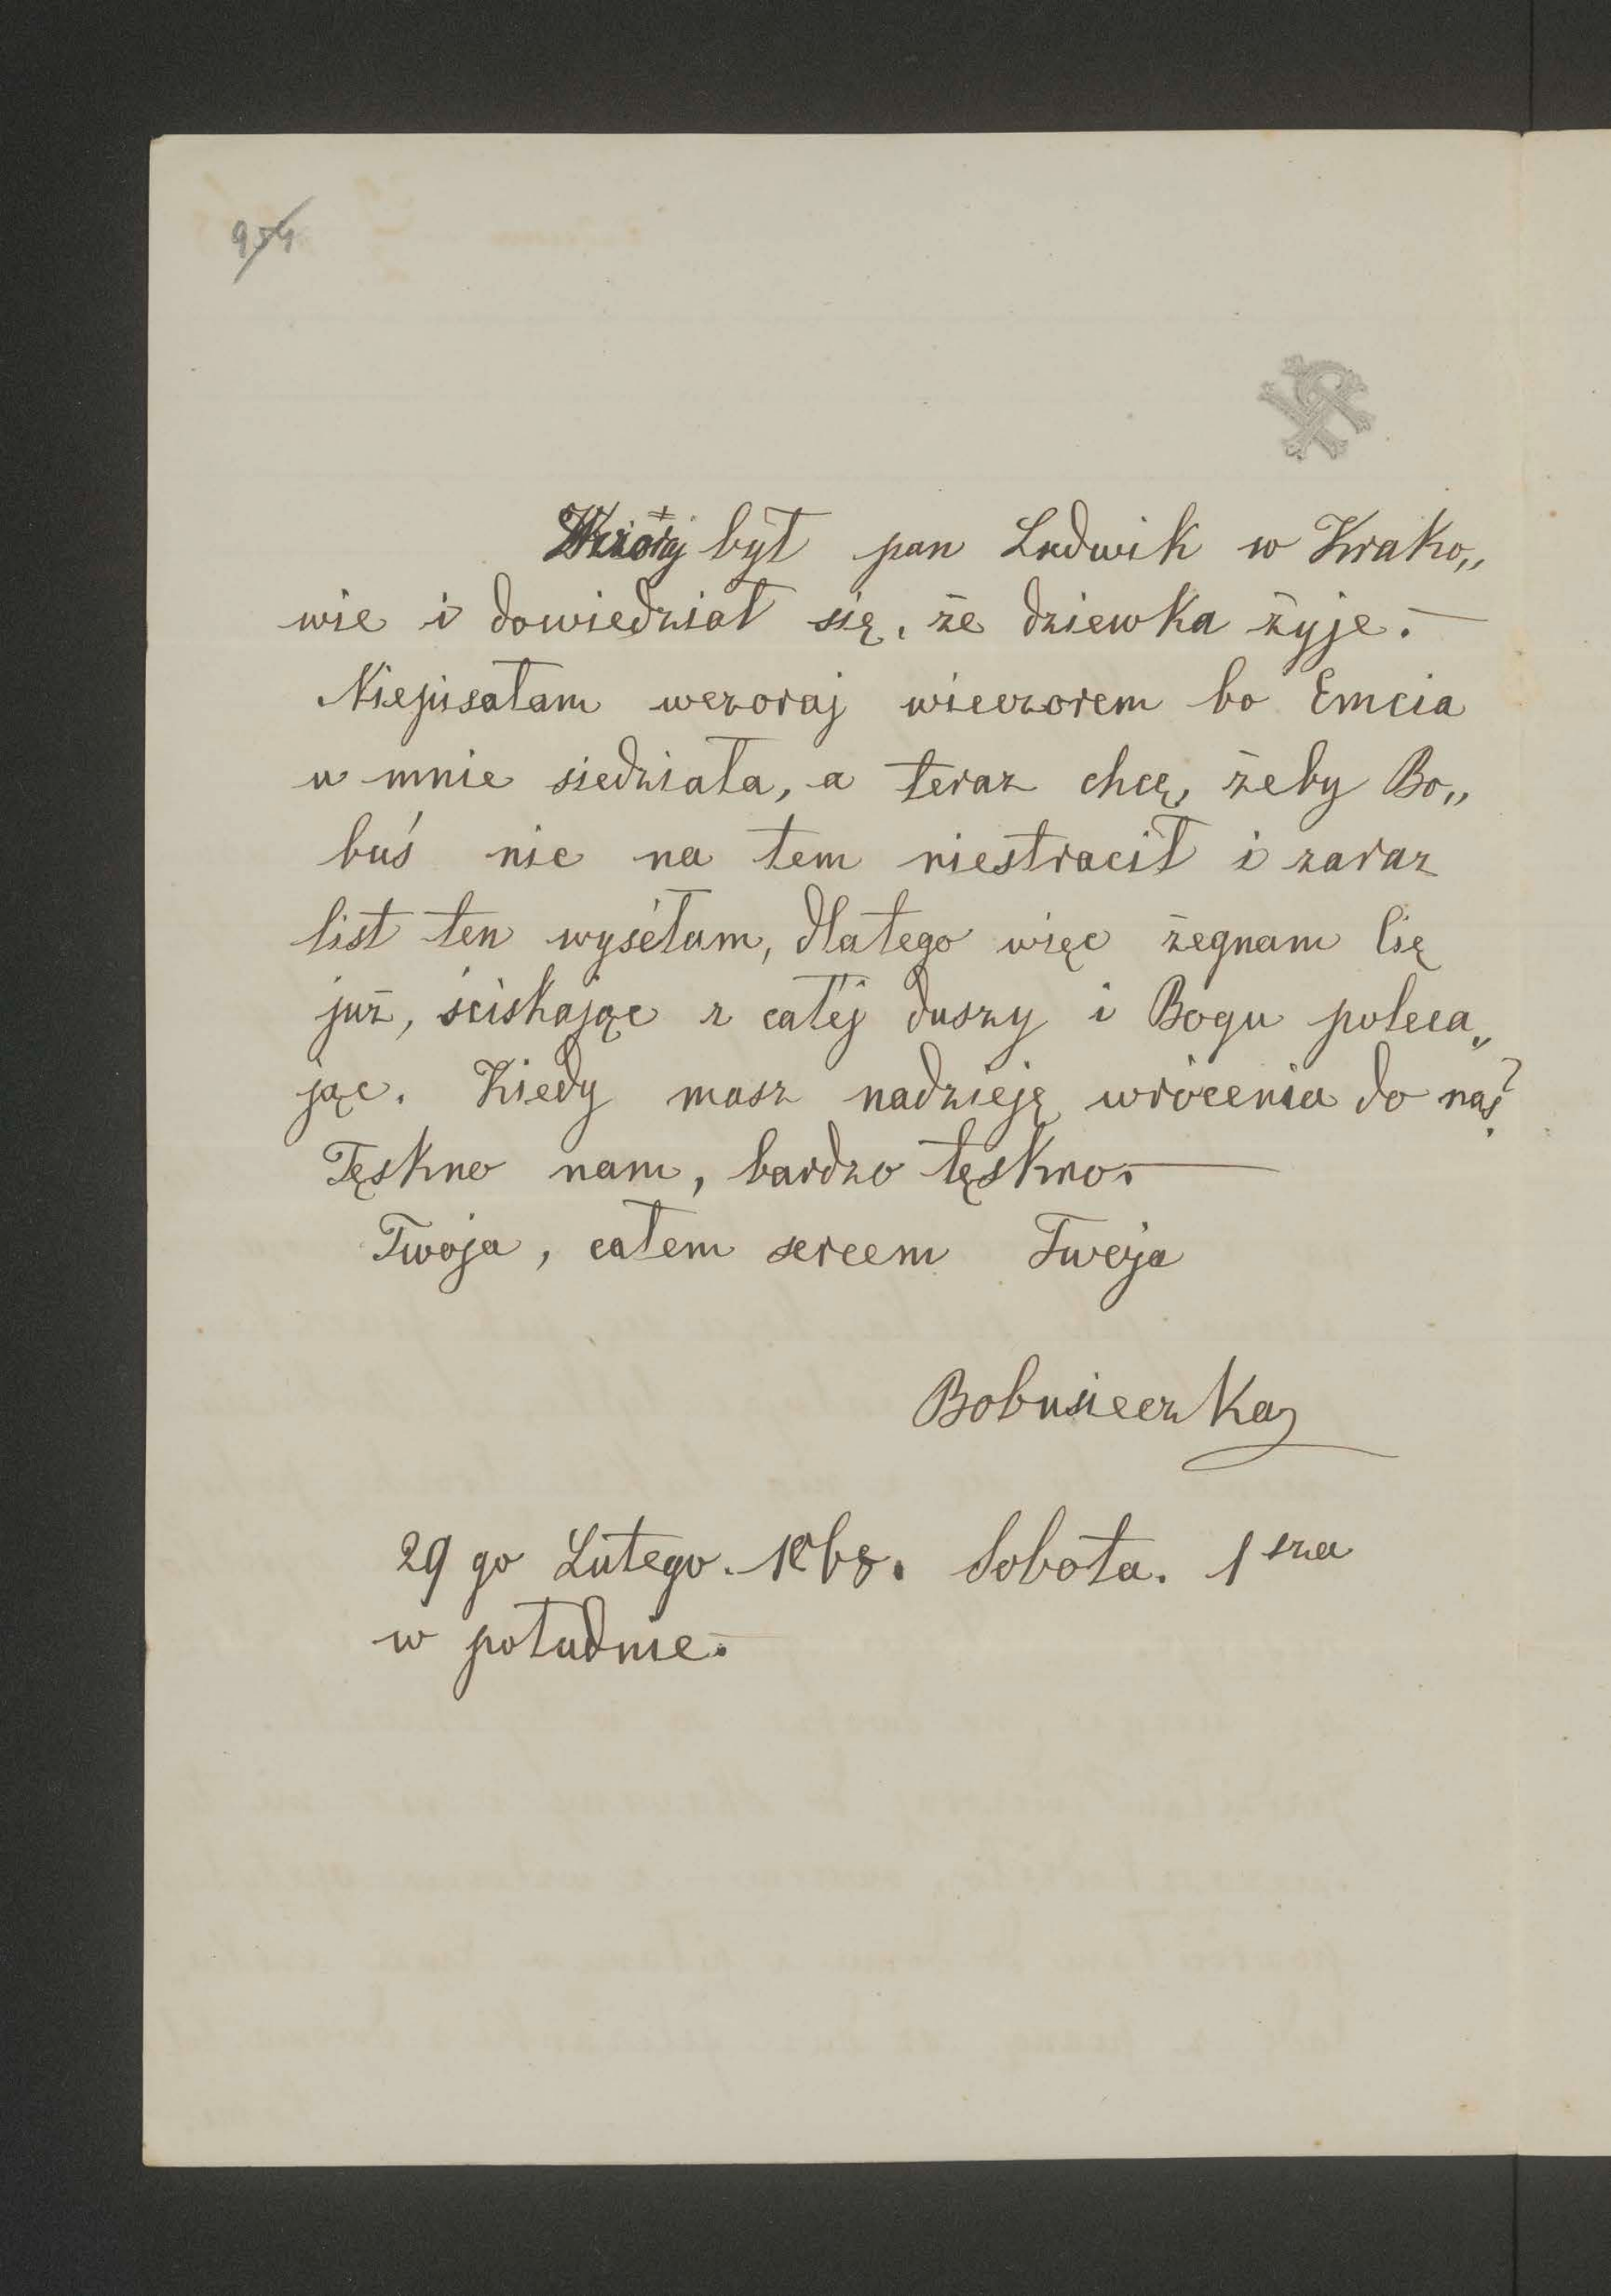 954
Wczoraj był pan Ludwik w Krako„
wie i dowiedział się, że dziewka żyje.—
Niepisałam wczoraj wieczorem bo Emcia
u mnie siedziała, a teraz chcę, żeby Bo„
buś nic na tem niestracił i zaraz
list ten wyséłam, dlatego więc żegnam Cię
już, ściskając z całéj duszy i Bogu poleca„
jąc. Kiedy masz nadzieję wrócenia do nas?
Tęskno nam, bardzo tęskno.—
Twoja, całem sercem Twoja
Bobusieczka
29 go Lutego. 1868. Sobota. 1 sza
w południe.